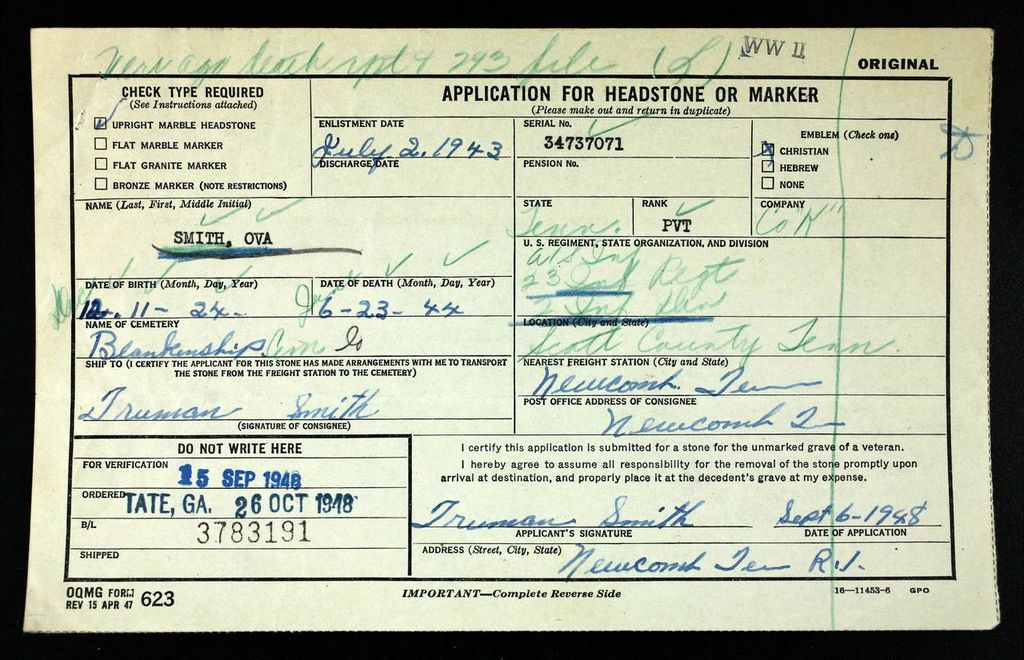 WW II
ORIGINAL
CHECK TYPE REQUIRED
(See Instructions attached)
UPRIGHT MARBLE HEADSTONE
FLAT MARBLE MARKER
FLAT GRANITE MARKER
BRONZE MARKER (NOTE RESTRICTIONS)
APPLICATION FOR HEADSTONE OR MARKER
(Please make out and return in duplicate)
ENLISTMENT DATE
July 2. 1943
DISCHARGE DATE
SERIAL No.
34737071
PENSION No.
EMBLEM (Check one)
CHRISTIAN
HEBREW
NONE
NAME (Last, First, Middle Initial)
SMITH, OVA
STATE
Tenn.
RANK
PVT
COMPANY
Co "K"
U. S. REGIMENT, STATE ORGANIZATION, AND DIVISION
23 Inf Regt
2 Inf Div
DATE OF BIRTH (Month, Day, Year)
12. 11 - 24-
DATE OF DEATH (Month, Day, Year)
6-23-44
NAME OF CEMETERY
Blankenship Cem
LOCATION (City and State)
Scott County Tenn.
SHIP TO (I CERTIFY THE APPLICANT FOR THIS STONE HAS MADE ARRANGEMENTS WITH ME TO TRANSPORT
THE STONE FROM THE FREIGHT STATION TO THE CEMETERY)
Truman Smith
(SIGNATURE OF CONSIGNEE)
NEAREST FREIGHT STATION (City and State)
Newcomb. Ten
POST OFFICE ADDRESS OF CONSIGNEE
Newcomb
DO NOT WRITE HERE
FOR VERIFICATION
15 SEP 1948
ORDERED
TATE, GA. 26 OCT 1948
B/L
3783191
SHIPPED
I certify this application is submitted for a stone for the unmarked grave of a veteran.
I hereby agree to assume all responsibility for the removal of the stone promptly upon
arrival at destination, and properly place it at the decedent's grave at my expense.
Truman Smith Sept 6-1948
APPLICANT'S SIGNATURE DATE OF APPLICATION
ADDRESS (Street, City, State)
Newcomb Ten R.1.
OQMG FORM
REV 15 APR 47 623
IMPORTANT—Complete Reverse Side
16—11453-6 GPO